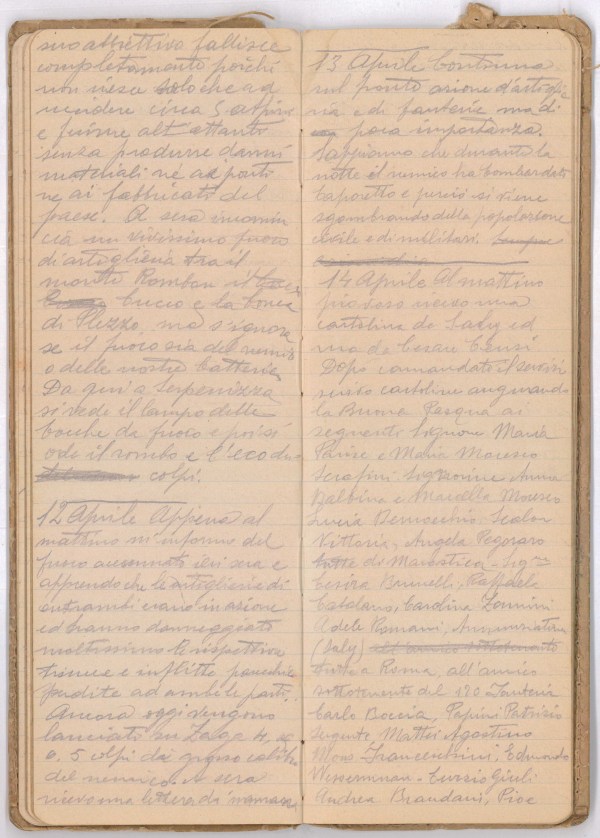 suo obbiettivo fallisce
completamente poichè
non riesce solo che ad
uccidere circa 5 alpini
e ferirne altrettanti
senza produrre danni
materiali nè ai ponti
nè ai fabbricati del
paese. A sera incomin
cia un vivissimo fuoco
di artiglieria tra il
monte Rombon il
Cuccio e la conca
di Plezzo, ma s'ignora
se il fuoco sia del nemico
o delle nostre batterie
Da qui a Serpenizza
si vede il lampo delle
bocche da fuoco e poi si
ode il rombo e l'eco dei
colpi.
12 Aprile Appena al
mattino mi informo del
fuoco avvenuto ieri sera e
apprendo che le artiglierie di
entrambi erano in azione
ed hanno danneggiato
moltissimo le rispettive
trincee e inflitte parecchie
perdite ad ambo le parti.
Ancora oggi vengono
lanciati su Zaga 4, o
5 colpi dai grossi calibri
del nemico. A sera
ricevo una lettera di mamma
13 Aprile Continua
sul fronte azione d'artiglie
ria e di fanterie ma di
poca importanza.
Sappiamo che durante la
notte il nemico ha bombardato
Caporetto e perciò si viene
sgombrando della popolazione
civile e di militari.
14 Aprile Al mattino
piovoso ricevo una
cartolina da Saly ed
una da Cesare Censi
Dopo comandati i servizi
scrivo cartoline augurando
la Buona Pasqua ai
seguenti Signore Maria
Parise e Maria Moresco
Serafini Signorine Anna
Balbina e Marcella Moresco
Lucia Bernacchio Scalon
Vittoria, Angela Pegoraro
di Marostica - Sig.ne
Cesira Brunelli, Raffaele
Catalano, Carolina Zannini
Adele Romani, Annunziatina
(Saly)
tutte a Roma, all'amico
sottotenente del 120 Fanteria
Carlo Boccia, Papini Patrizio
Sergente Mattei Agostino
Mons Francentrini, Edmondo
Wesserman - Tursio Giuli
Andrea Brandani, Pioc